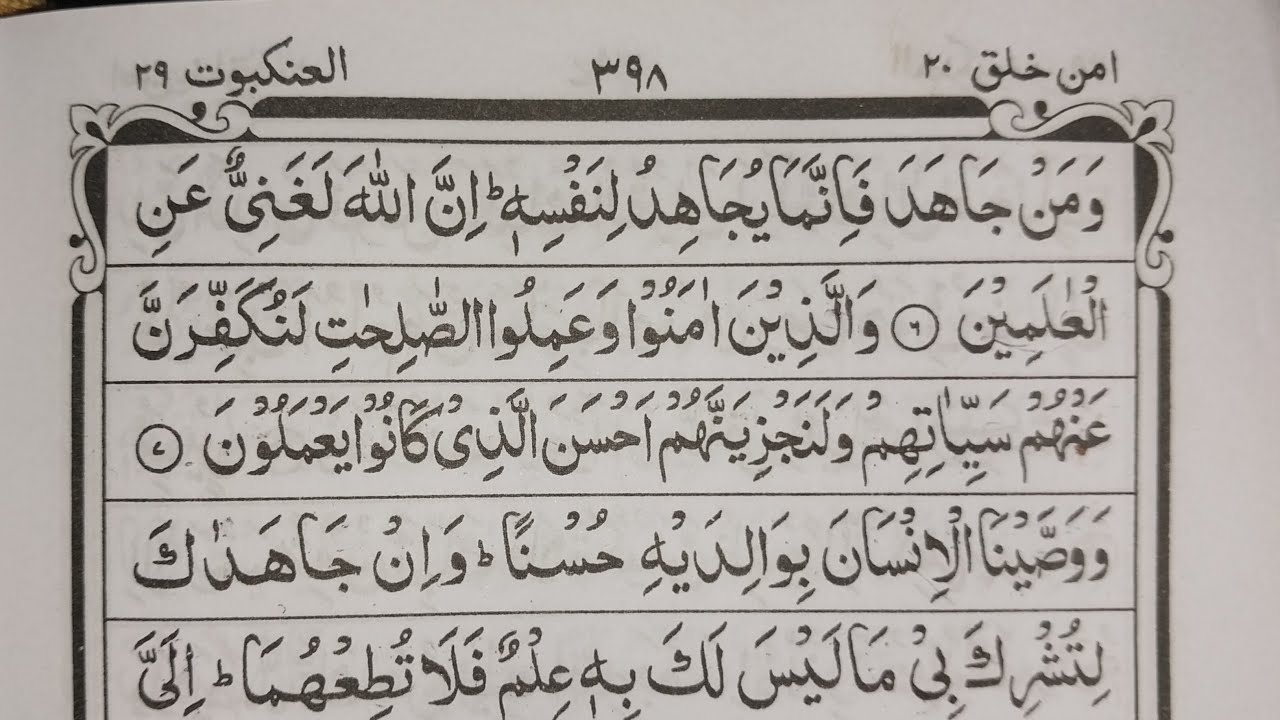 امن خلق ۲۰ ۳۹۸ العنكبوت ۲۹
وَمَنْ جَاهَدَ فَاِنَّمَا يُجَاهِدُ لِنَفْسِهٖ ؕ اِنَّ اللّٰهَ لَغَنِىٌّ عَنِ
الْعٰلَمِيْنَ ۶ وَالَّذِيْنَ اٰمَنُوْا وَعَمِلُوا الصّٰلِحٰتِ لَنُكَفِّرَنَّ
عَنْهُمْ سَيِّاٰتِهِمْ وَلَنَجْزِيَنَّهُمْ اَحْسَنَ الَّذِىْ كَانُوْا يَعْمَلُوْنَ ۷
وَوَصَّيْنَا الْاِنْسَانَ بِوَالِدَيْهِ حُسْنًا ؕ وَاِنْ جَاهَدٰكَ
لِتُشْرِكَ بِىْ مَا لَيْسَ لَكَ بِهٖ عِلْمٌ فَلَا تُطِعْهُمَا ؕ اِلَىَّ